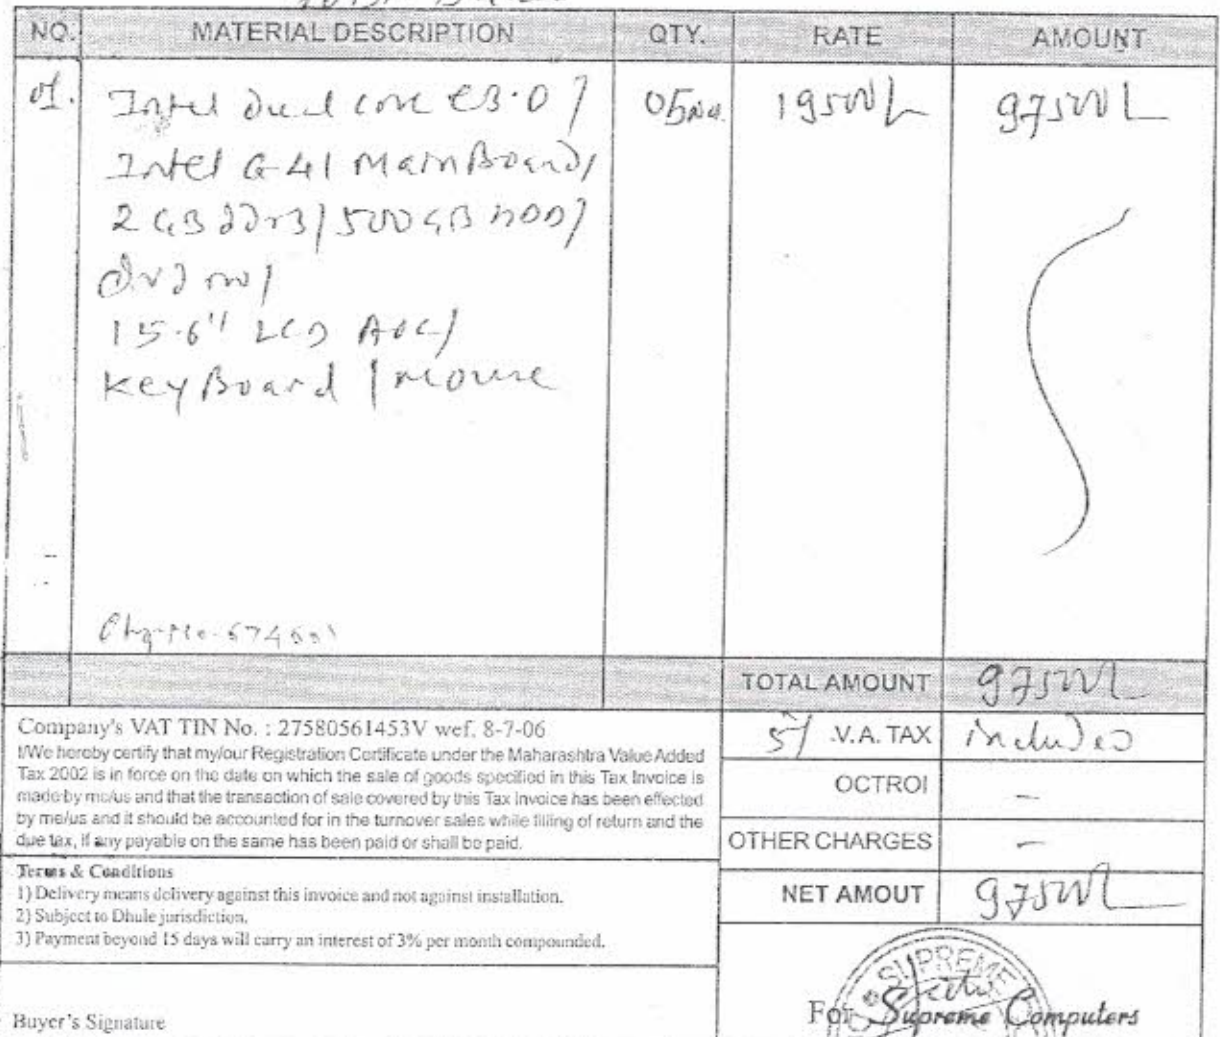 NO. MATERIAL DESCRIPTION QTY. RATE AMOUNT
01. Intel dual core E3.0/ 05No. 19500/- 97500/-
Intel G-41 MainBoard/
2GB DDr3/500GB HDD/
dvd rw/
15.6" LCD AOC/
KeyBoard/mouse
Chq-No-
TOTAL AMOUNT 97500/-
Company's VAT TIN No. : 27580561453V wef. 8-7-06
I/We hereby certify that my/our Registration Certificate under the Maharashtra Value Added
Tax 2002 is in force on the date on which the sale of goods specified in this Tax Invoice is
made by me/us and that the transaction of sale covered by this Tax Invoice has been effected
by me/us and it should be accounted for in the turnover sales while filling of return and the
due tax, if any payable on the same has been paid or shall be paid.
5% V.A. TAX included
OCTROI –
OTHER CHARGES –
NET AMOUT 97500/-
Terms & Conditions
1) Delivery means delivery against this invoice and not against installation.
2) Subject to Dhule jurisdiction.
3) Payment beyond 15 days will carry an interest of 3% per month compounded.
SUPREME
For Supreme Computers
Buyer's Signature